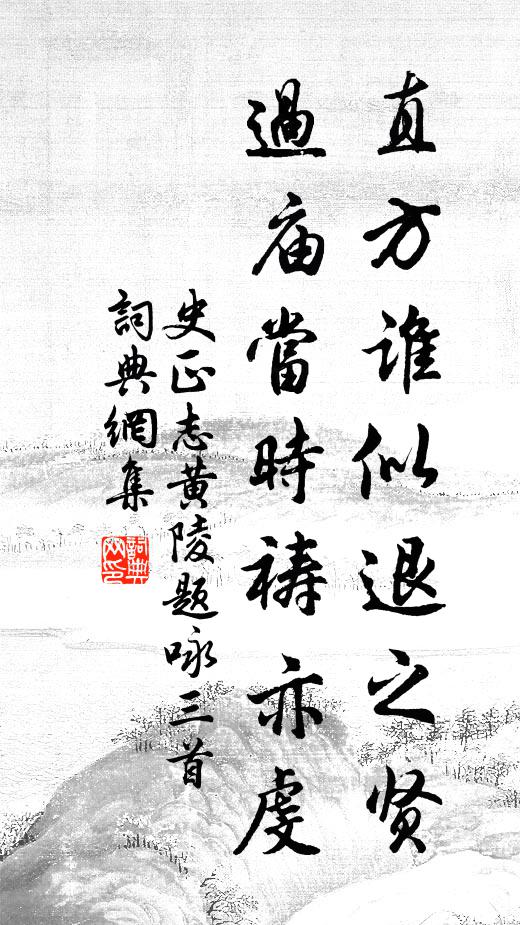 直方谁似退之贤
過庙當時祷亦虔
史正志黄陵题咏三首
詞典網集
詞典網印